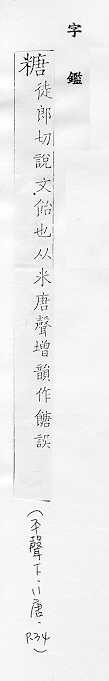 字鑑
糖徒郎切說文飴也从米唐聲增韻作餹誤
(平聲下·11唐·P.34)